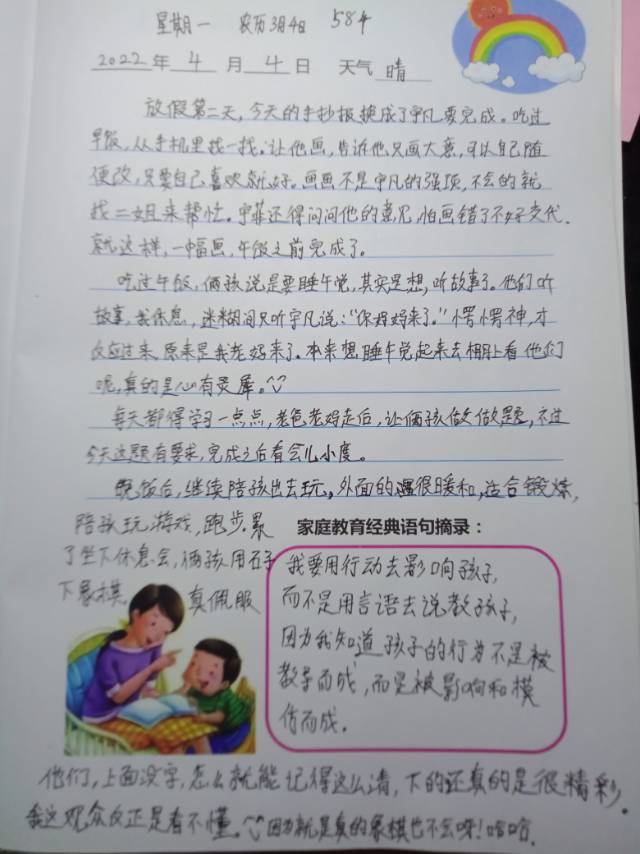 星期一 农历3月4日 584
2022年4月4日 天气晴
放假第二天,今天的手抄报换成了宇凡要完成。吃过
早饭,从手机里找一找。让他画,告诉他只画大意,可以自己随
便改,只要自己喜欢就好。画画不是宇凡的强项,不会的就
找二姐来帮忙。宇菲还得问问他的意见,怕画错了不好交代.
就这样,一幅画,午饭之前完成了。
吃过午饭,俩孩说是要睡午觉,其实是想,听故事了。他们听
故事,我休息,迷糊间只听宇凡说:“你妈妈来了。”愣愣神,才
反应过来,原来是我老妈来了。本来想睡午觉起来去棚上看他们
呢,真的是心有灵犀。
每天都得学习一点点,老爸老妈走后,让俩孩做做题,不过
今天这题有要求,完成之后看会儿小度。
晚饭后,继续陪孩出去玩,外面的温很暖和,适合锻炼,
陪孩玩游戏,跑步,累
了坐下休息会,俩孩用石子
下象棋 真佩服
家庭教育经典语句摘录:
我要用行动去影响孩子,
而不是用言语去说教孩子,
因为我知道孩子的行为不是被
教导而成,而是被影响和模
仿而成.
他们,上面没字,怎么就能记得这么清,下的还真的是很精彩.
我这观众反正是看不懂。因为就是真的象棋也不会呀!哈哈.